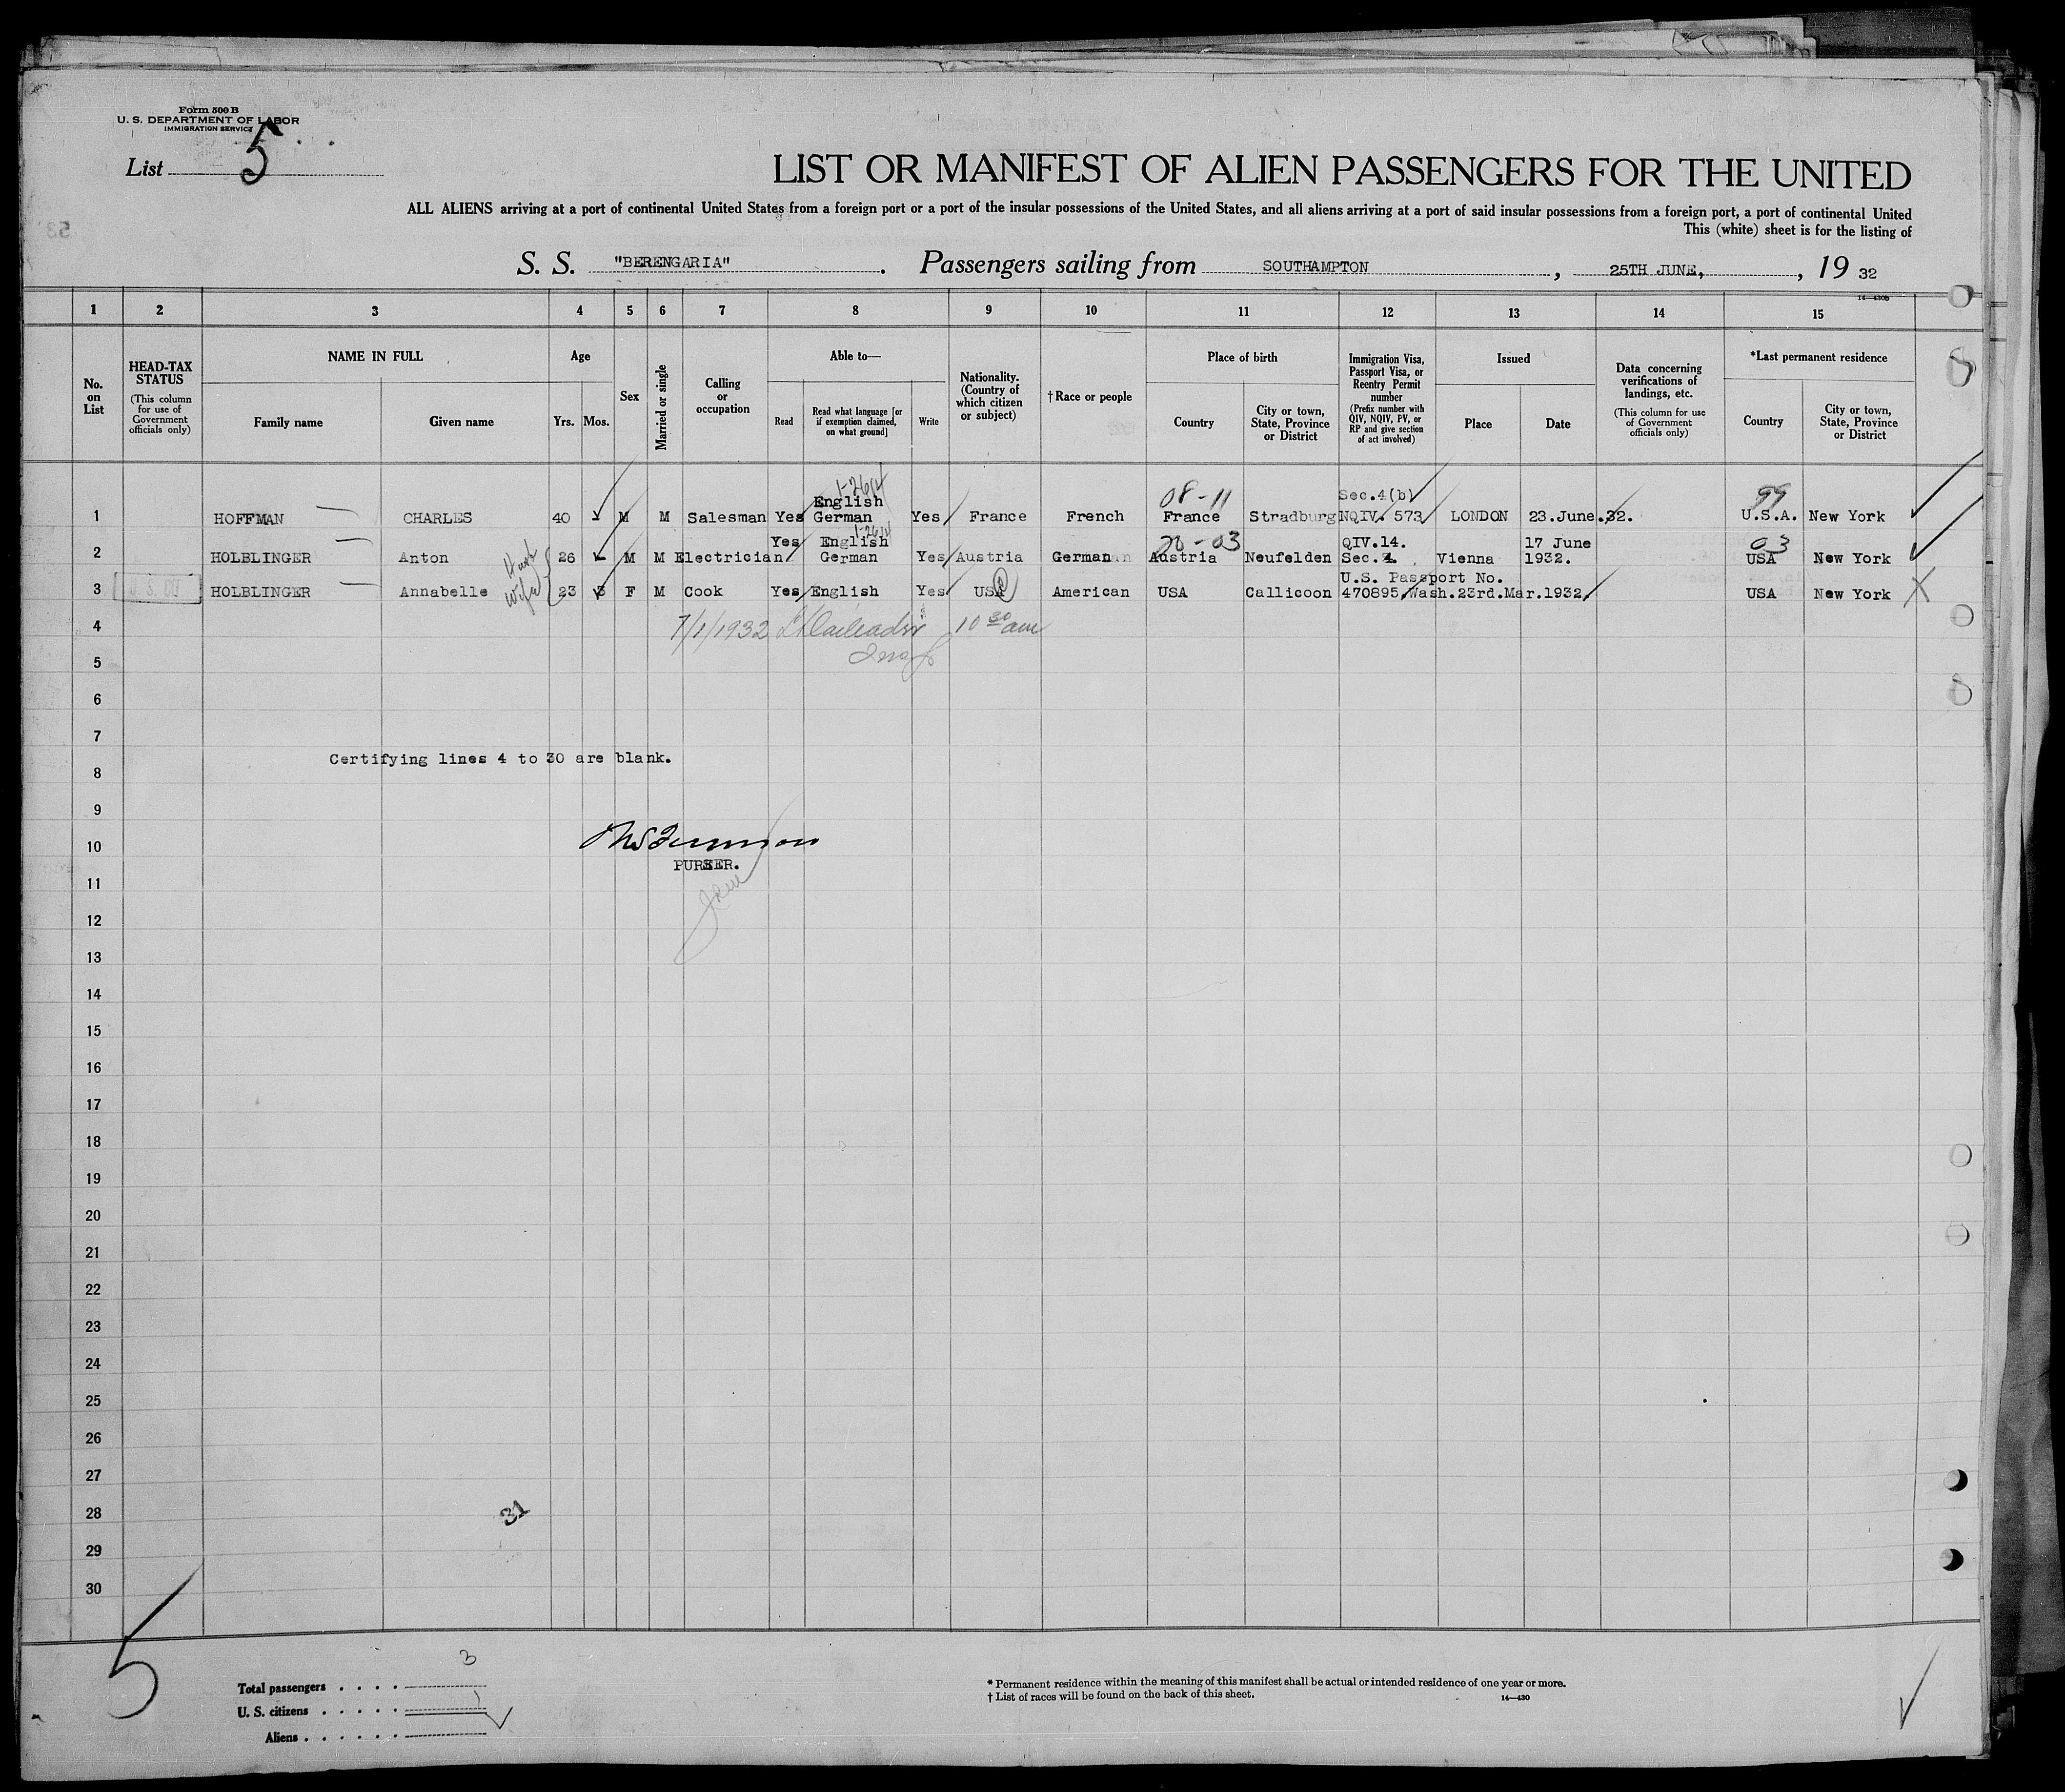 Form 500 B
U. S. DEPARTMENT OF LABOR
IMMIGRATION SERVICE
List 5
LIST OR MANIFEST OF ALIEN PASSENGERS FOR THE UNITED
ALL ALIENS arriving at a port of continental United States from a foreign port or a port of the insular possessions of the United States, and all aliens arriving at a port of said insular possessions from a foreign port, a port of continental United
This (white) sheet is for the listing of
S. S. "BERENGARIA". Passengers sailing from SOUTHAMPTON, 25TH JUNE,, 19 32
14—430b
1 2 3 4 5 6 7 8 9 10 11 12 13 14 15
No. on List
HEAD-TAX STATUS (This column for use of Government officials only)
NAME IN FULL Family name Given name
Age Yrs. Mos.
Sex
Married or single
Calling or occupation
Able to— Read Read what language [or if exemption claimed, on what ground] Write
Nationality. (Country of which citizen or subject)
†Race or people
Place of birth Country City or town, State, Province or District
Immigration Visa, Passport Visa, or Reentry Permit number (Prefix number with QIV, NQIV, PV, or RP and give section of act involved)
Issued Place Date
Data concerning verifications of landings, etc. (This column for use of Government officials only)
*Last permanent residence Country City or town, State, Province or District
08-11 Sec.4(b) 99
1 HOFFMAN CHARLES 40 M M Salesman Yes English German Yes France French France Stradburg NQIV. 573 LONDON 23.June.32. U.S.A. New York
20-03 03
2 HOLBLINGER Anton Husb 26 M M Electrician Yes English German Yes Austria German Austria Neufelden QIV.14. Sec.4. Vienna 17 June 1932. USA New York
3 HOLBLINGER Annabelle Wife 23 F M Cook Yes English Yes USA American USA Callicoon U.S. Passport No. 470895 Wash.23rd.Mar.1932. USA New York
4 7/1/1932 10 30 am
5
6
7
Certifying lines 4 to 30 are blank.
8
9
10
PURSER.
11
12
13
14
15
16
17
18
19
20
21
22
23
24
25
26
27
28 31
29
30
5
Total passengers . . . . 3
U. S. citizens . . . . . 1
Aliens . . . . . .
* Permanent residence within the meaning of this manifest shall be actual or intended residence of one year or more.
† List of races will be found on the back of this sheet.
14—430